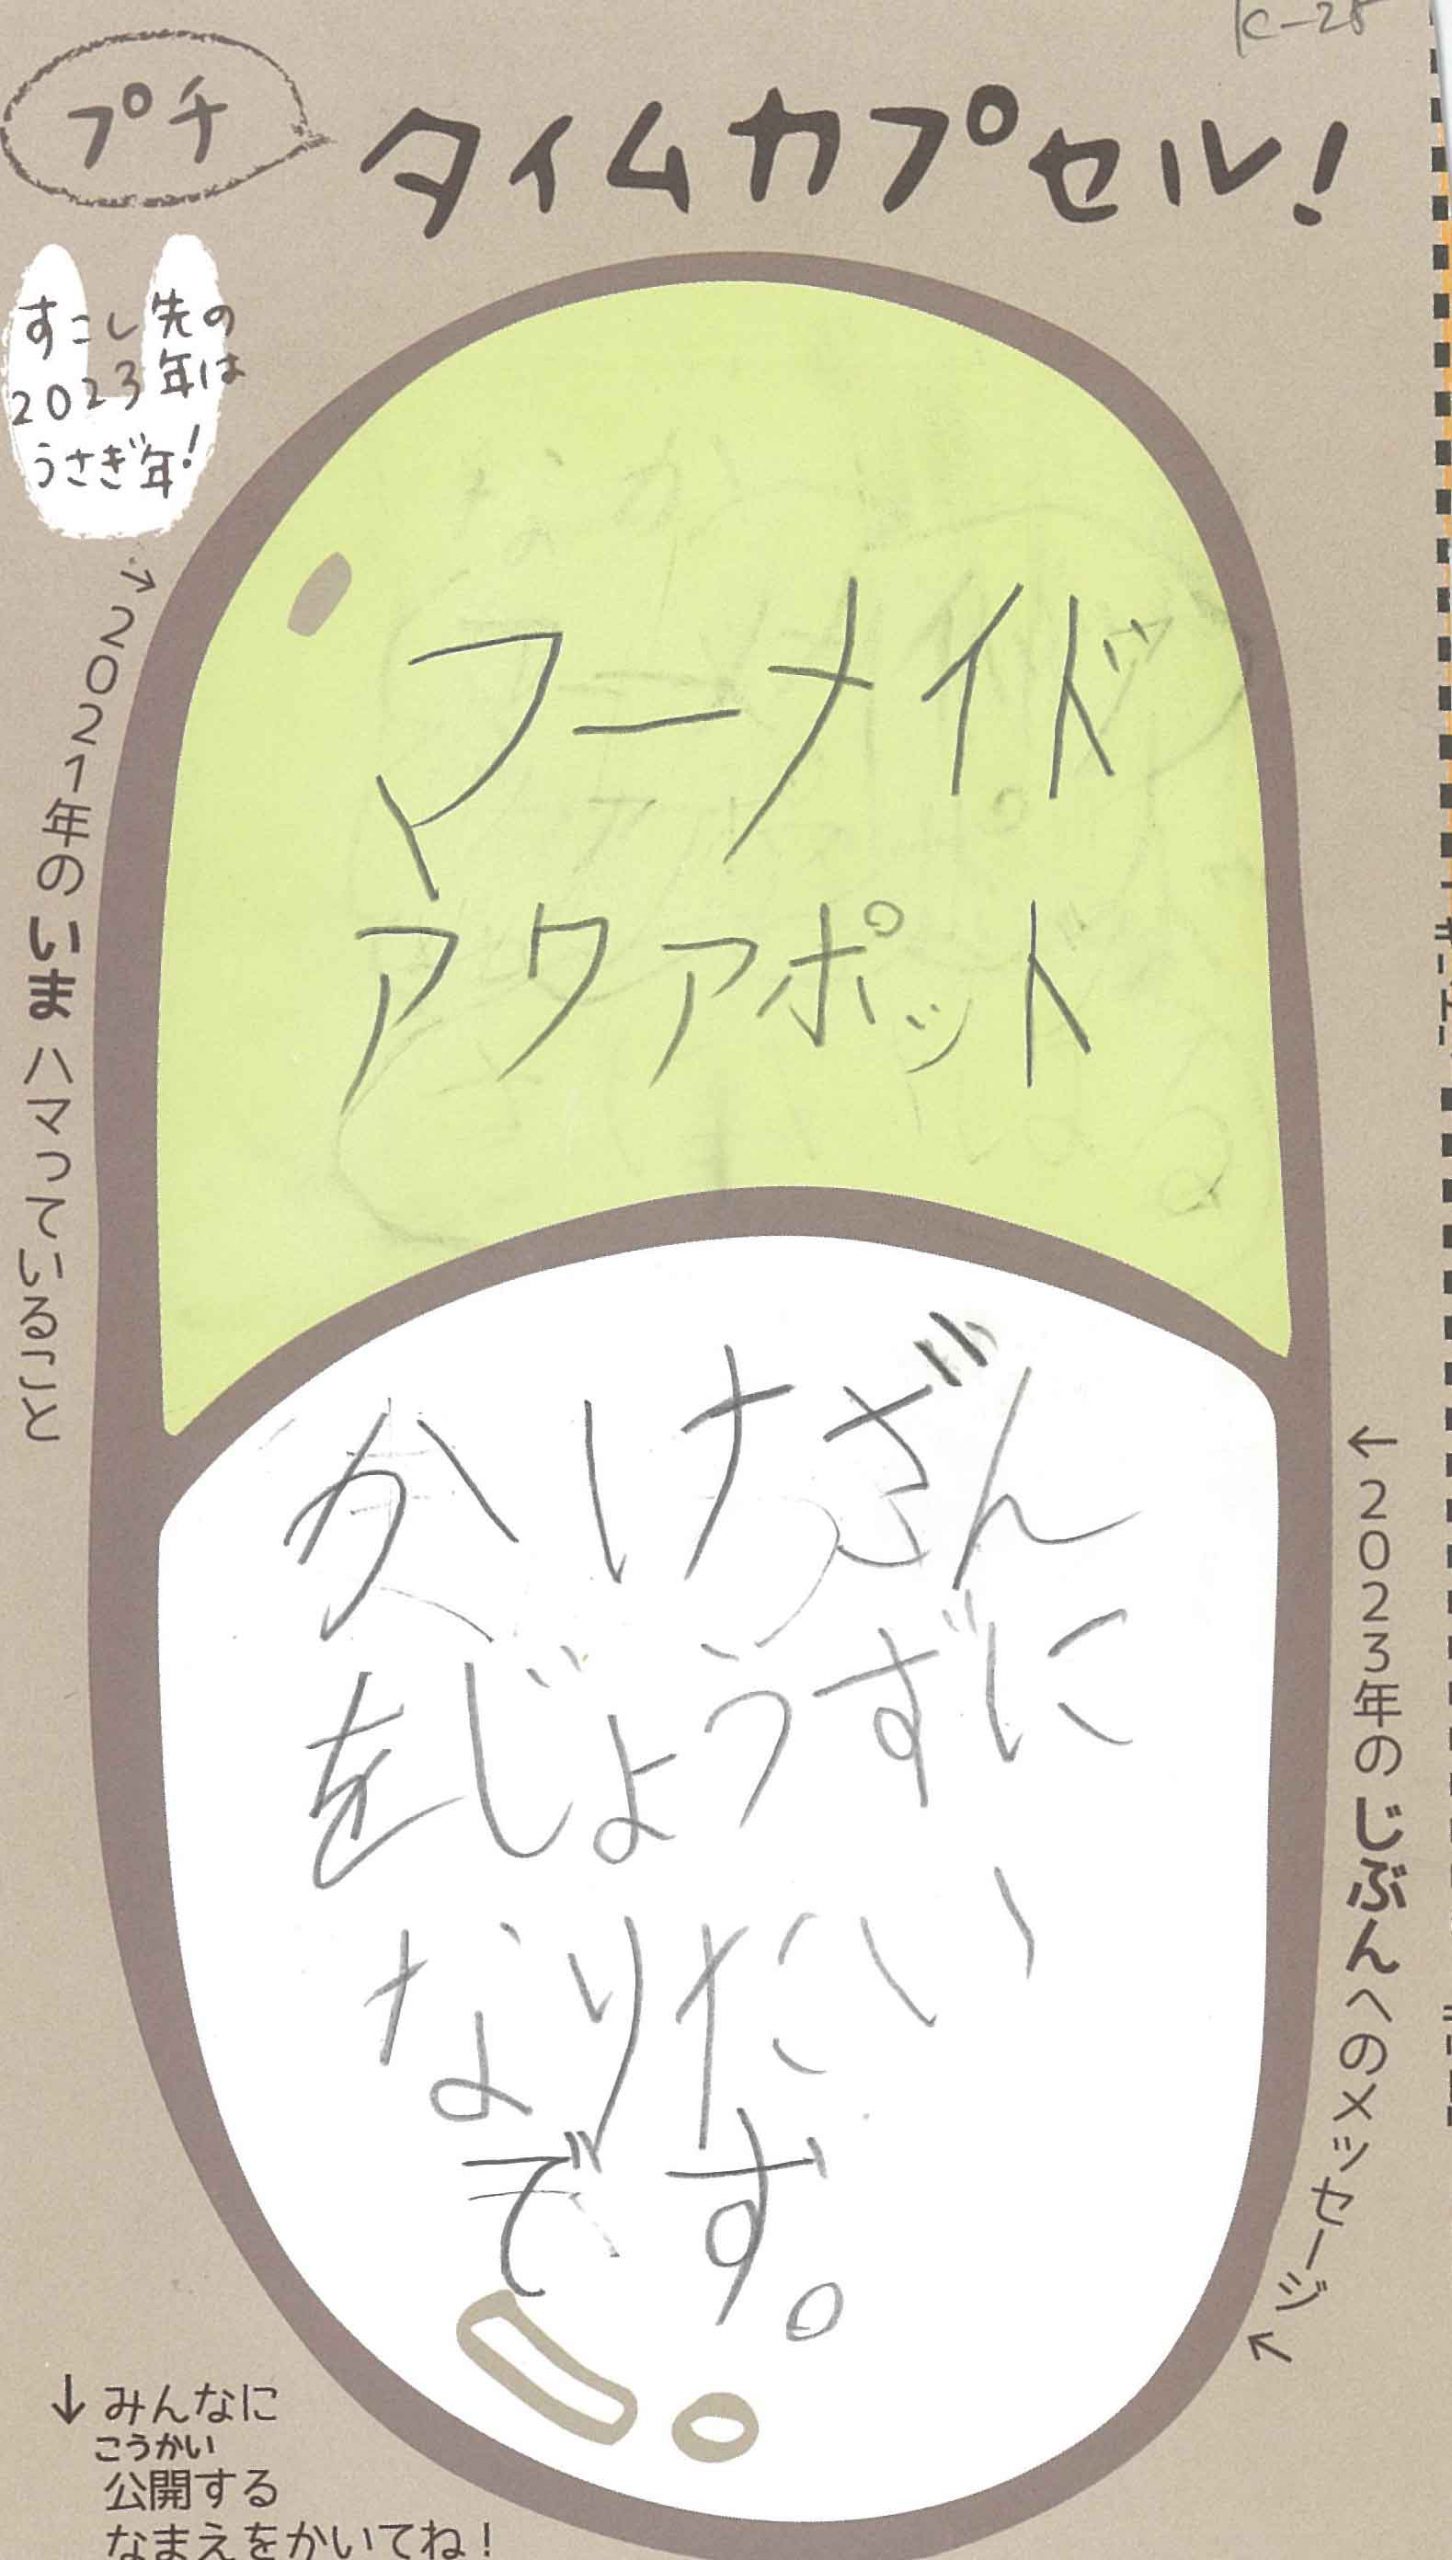 K-28
プチ
タイムカプセル!
すこし先の
2023年は
うさぎ年!
→2021年のいまハマっていること
マーメイド
アクアポット
←2023年のじぶんへのメッセージ
かけざん
をじょうずに
なりたい
です。
↓みんなに
こうかい
公開する
なまえをかいてね!